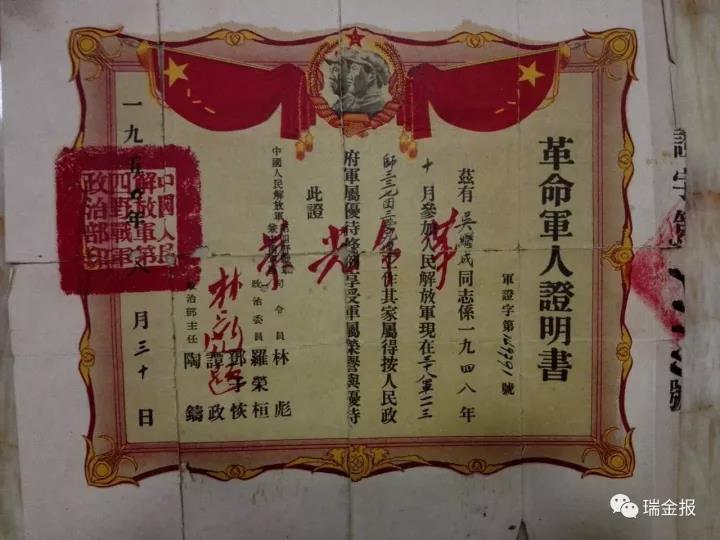 證字第號
革命軍人證明書
軍證字第號
茲有吳耀成同志係一九四八年
十月參加人民解放軍現在三十八軍一一三
師三三七团工作其家屬得按人民政
府軍屬優待條例享受軍屬榮譽與優待
此證
革命光荣
中國人民解放軍
司令員林彪
政治委員羅榮桓
鄧子恢
政治部主任譚政
陶鑄
一九五〇年八月三十日
中國人民
解放軍第
四野戰軍
政治部印
瑞金报